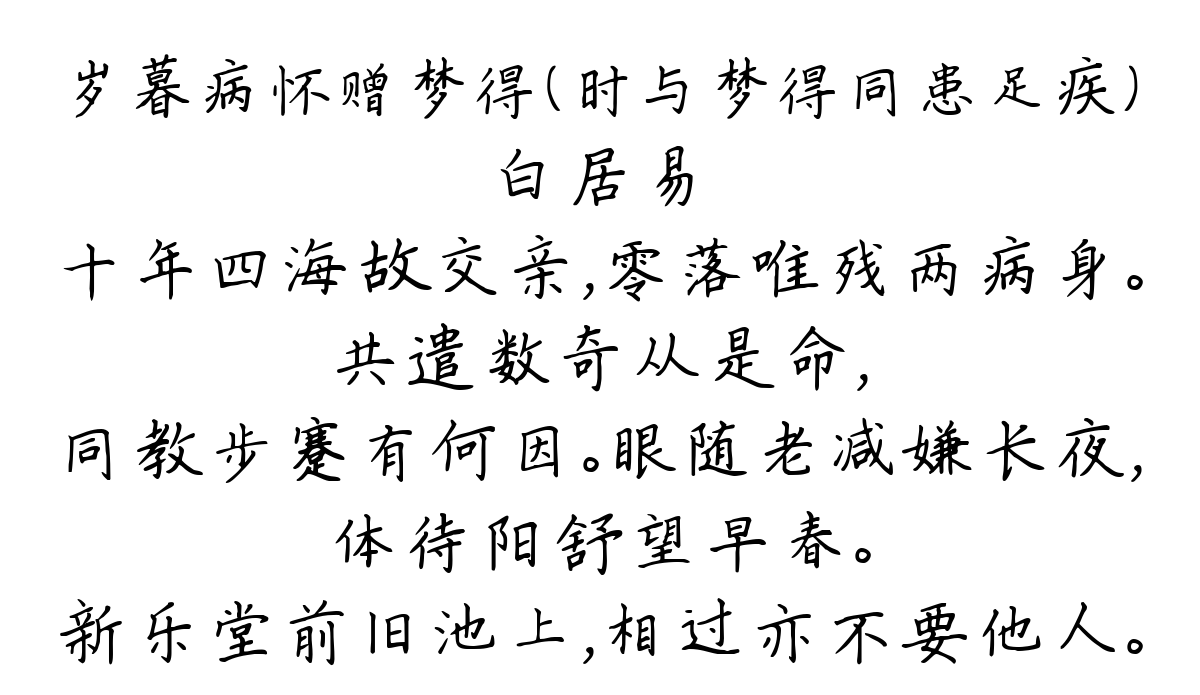 岁暮病怀赠梦得(时与梦得同患足疾)
白居易
十年四海故交亲,零落唯残两病身。
共遣数奇从是命,
同教步蹇有何因。眼随老减嫌长夜,
体待阳舒望早春。
新乐堂前旧池上,相过亦不要他人。